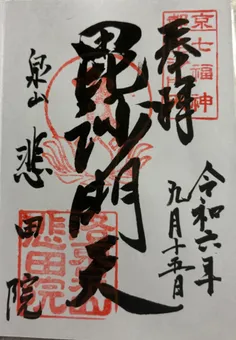 奉拝
京七福神
毘沙明天
令和六年
九月十五日
泉山
悲田院
悲田院